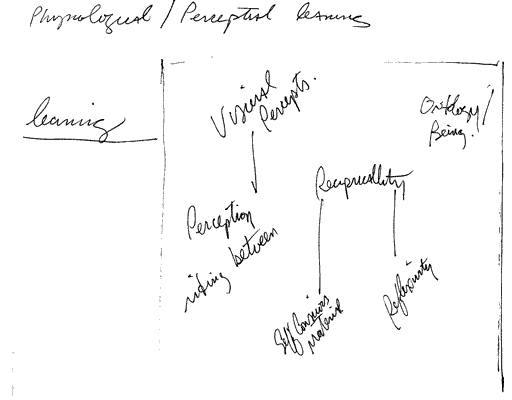 Physiological / Perceptual learning
learning
Visceral
Percepts.
Ontology /
Being.
Reciprocallity
Perception
between
Self Conscious
material
Reflexivity